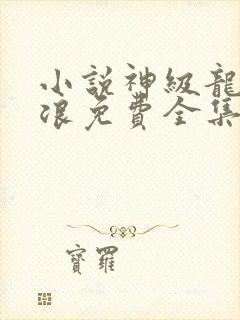 小說神級龍
浪免費全集
寶羅